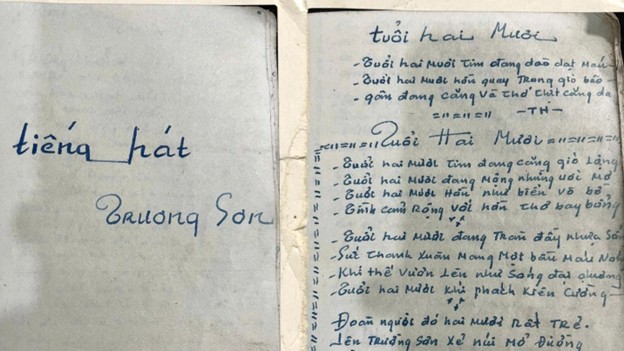 tiếng hát
Trường Sơn
tuổi hai Mươi
- Tuổi hai Mươi tim đang dào dạt Máu
- Tuổi hai Mươi hồn quay Trong gió bão -
- gân đang căng và thớ thịt căng da
=" =" =" — TH —
Tuổi Hai Mươi
- Tuổi hai Mươi tim đang căng gió Lộng
- Tuổi hai Mươi đang Mộng những ước Mơ
- Tuổi hai Mươi Hồn như biển Vô bờ
- Tình cảm Rộng Với hồn thơ bay bổng
- Tuổi hai Mươi đang Tràn đầy nhựa Sống
- Sức Thanh Xuân Mang Một bầu Máu Nóng
- Khí thế Vươn Lên như Sóng đại dương
- Tuổi hai Mươi Khí phách Kiên Cường -
Đoàn người đó hai Mươi Rất Trẻ.
Lên Trường Sơn Xẻ núi Mở Đường